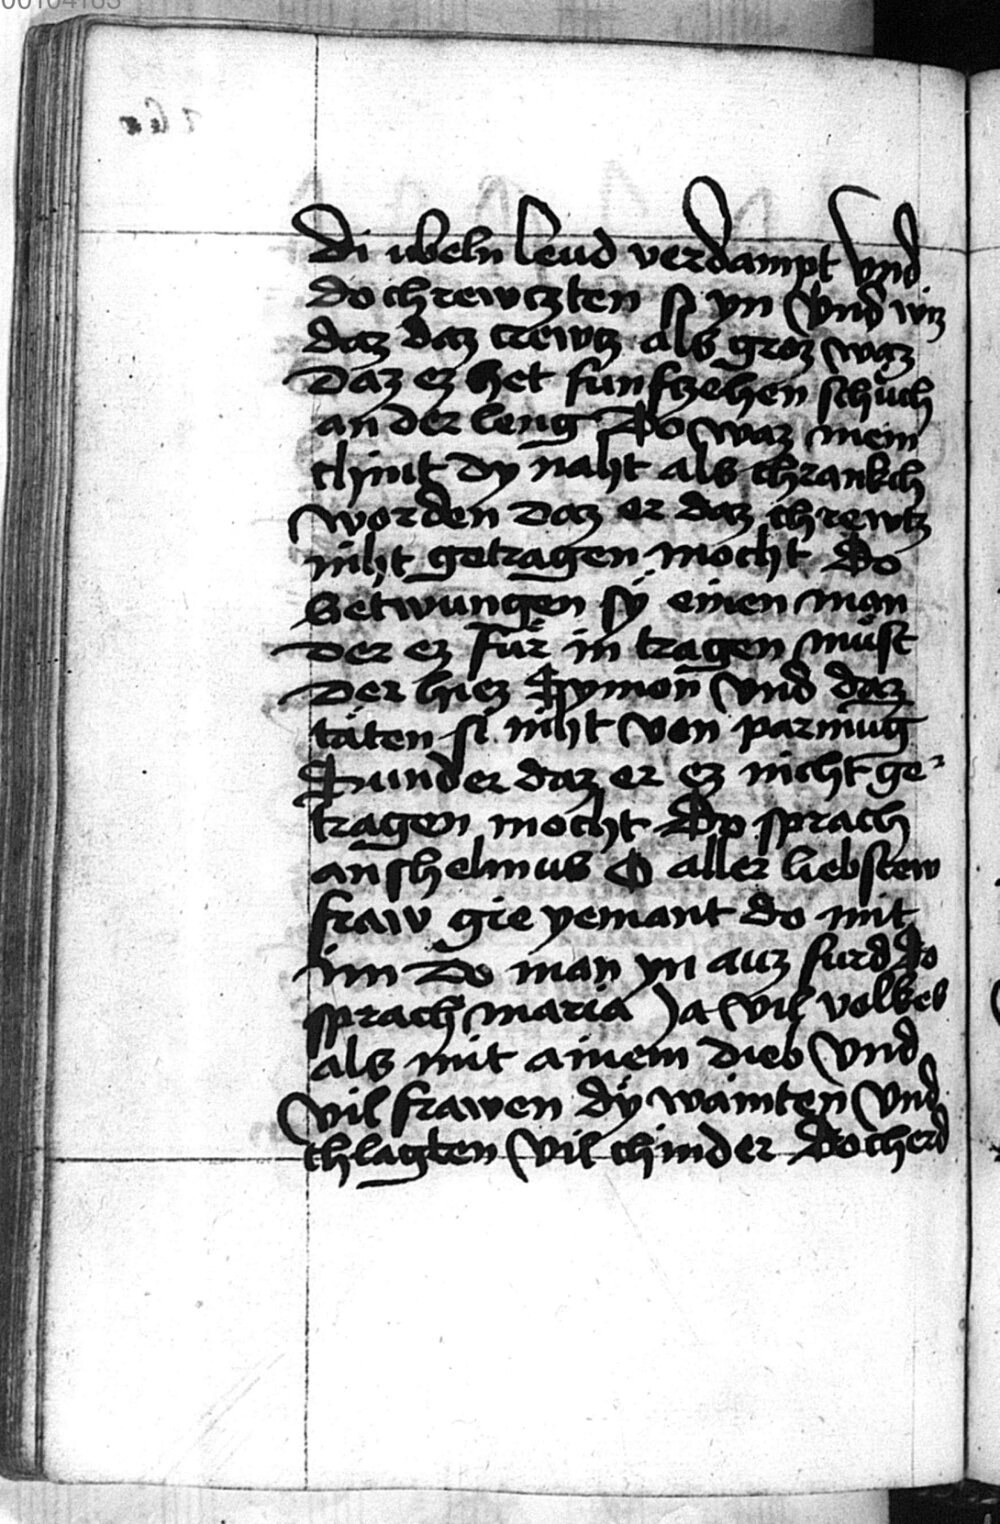 00104163
Di ubeln leud verdampt vnd
do chrewczten si yn vnd wiz
daz daz crewcz als groz waz
daz ez het funfczehen schüch
an der leng Do waz mein
chint dy naht als chrankch
worden daz er daz chrewtz
niht getragen mocht Do
betwungen sÿ einen man
der ez für in tragen müst
der hiez Symon vnd daz
täten si niht von parmüg
Sunder daz er ez nicht ge-
tragen mocht Do sprach
anshelmus O aller liebstew
fraw gie yemant do mit
im Do man yn auz furd Do
sprach maria Ja vil volkes
als mit ainem dieb vnd
vil frawen dÿ wainten vnd
chlagten vil chinder Do cherd